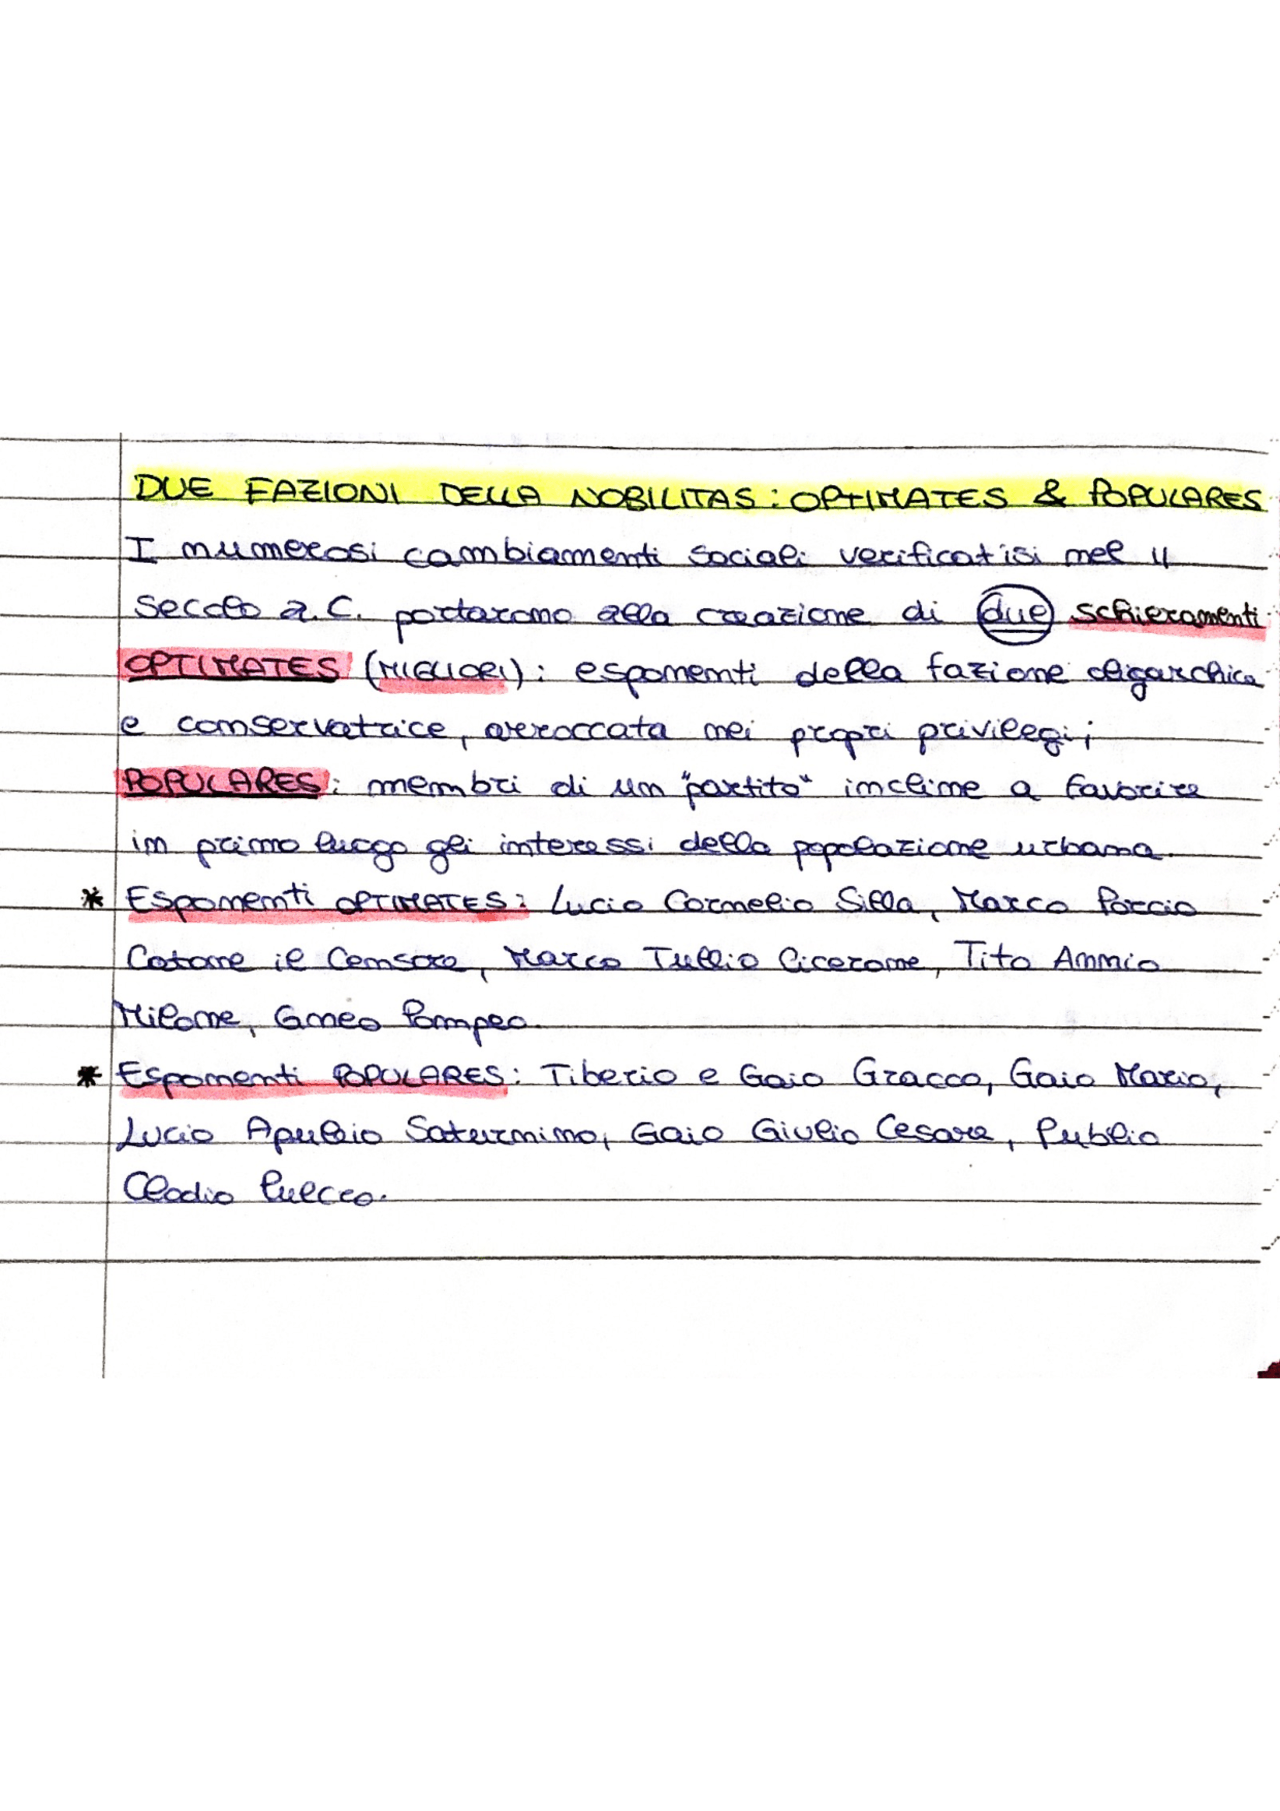 DUE FAZIONI DELLA NOBILITAS: OPTIMATES & POPULARES
I numerosi cambiamenti sociali verificatisi nel II
secolo a.C. portarono alla creazione di due schieramenti
OPTIMATES (MIGLIORI): esponenti della fazione oligarchica
e conservatrice, arroccata nei propri privilegi;
POPULARES: membri di un "partito" incline a favorire
in primo luogo gli interessi della popolazione urbana.
* Esponenti OPTIMATES: Lucio Cornelio Silla, Marco Porcio
Catone il Censore, Marco Tullio Cicerone, Tito Annio
Milone, Gneo Pompeo.
* Esponenti POPULARES: Tiberio e Gaio Gracco, Gaio Mario,
Lucio Apuleio Saturnino, Gaio Giulio Cesare, Publio
Clodio Pulcro.